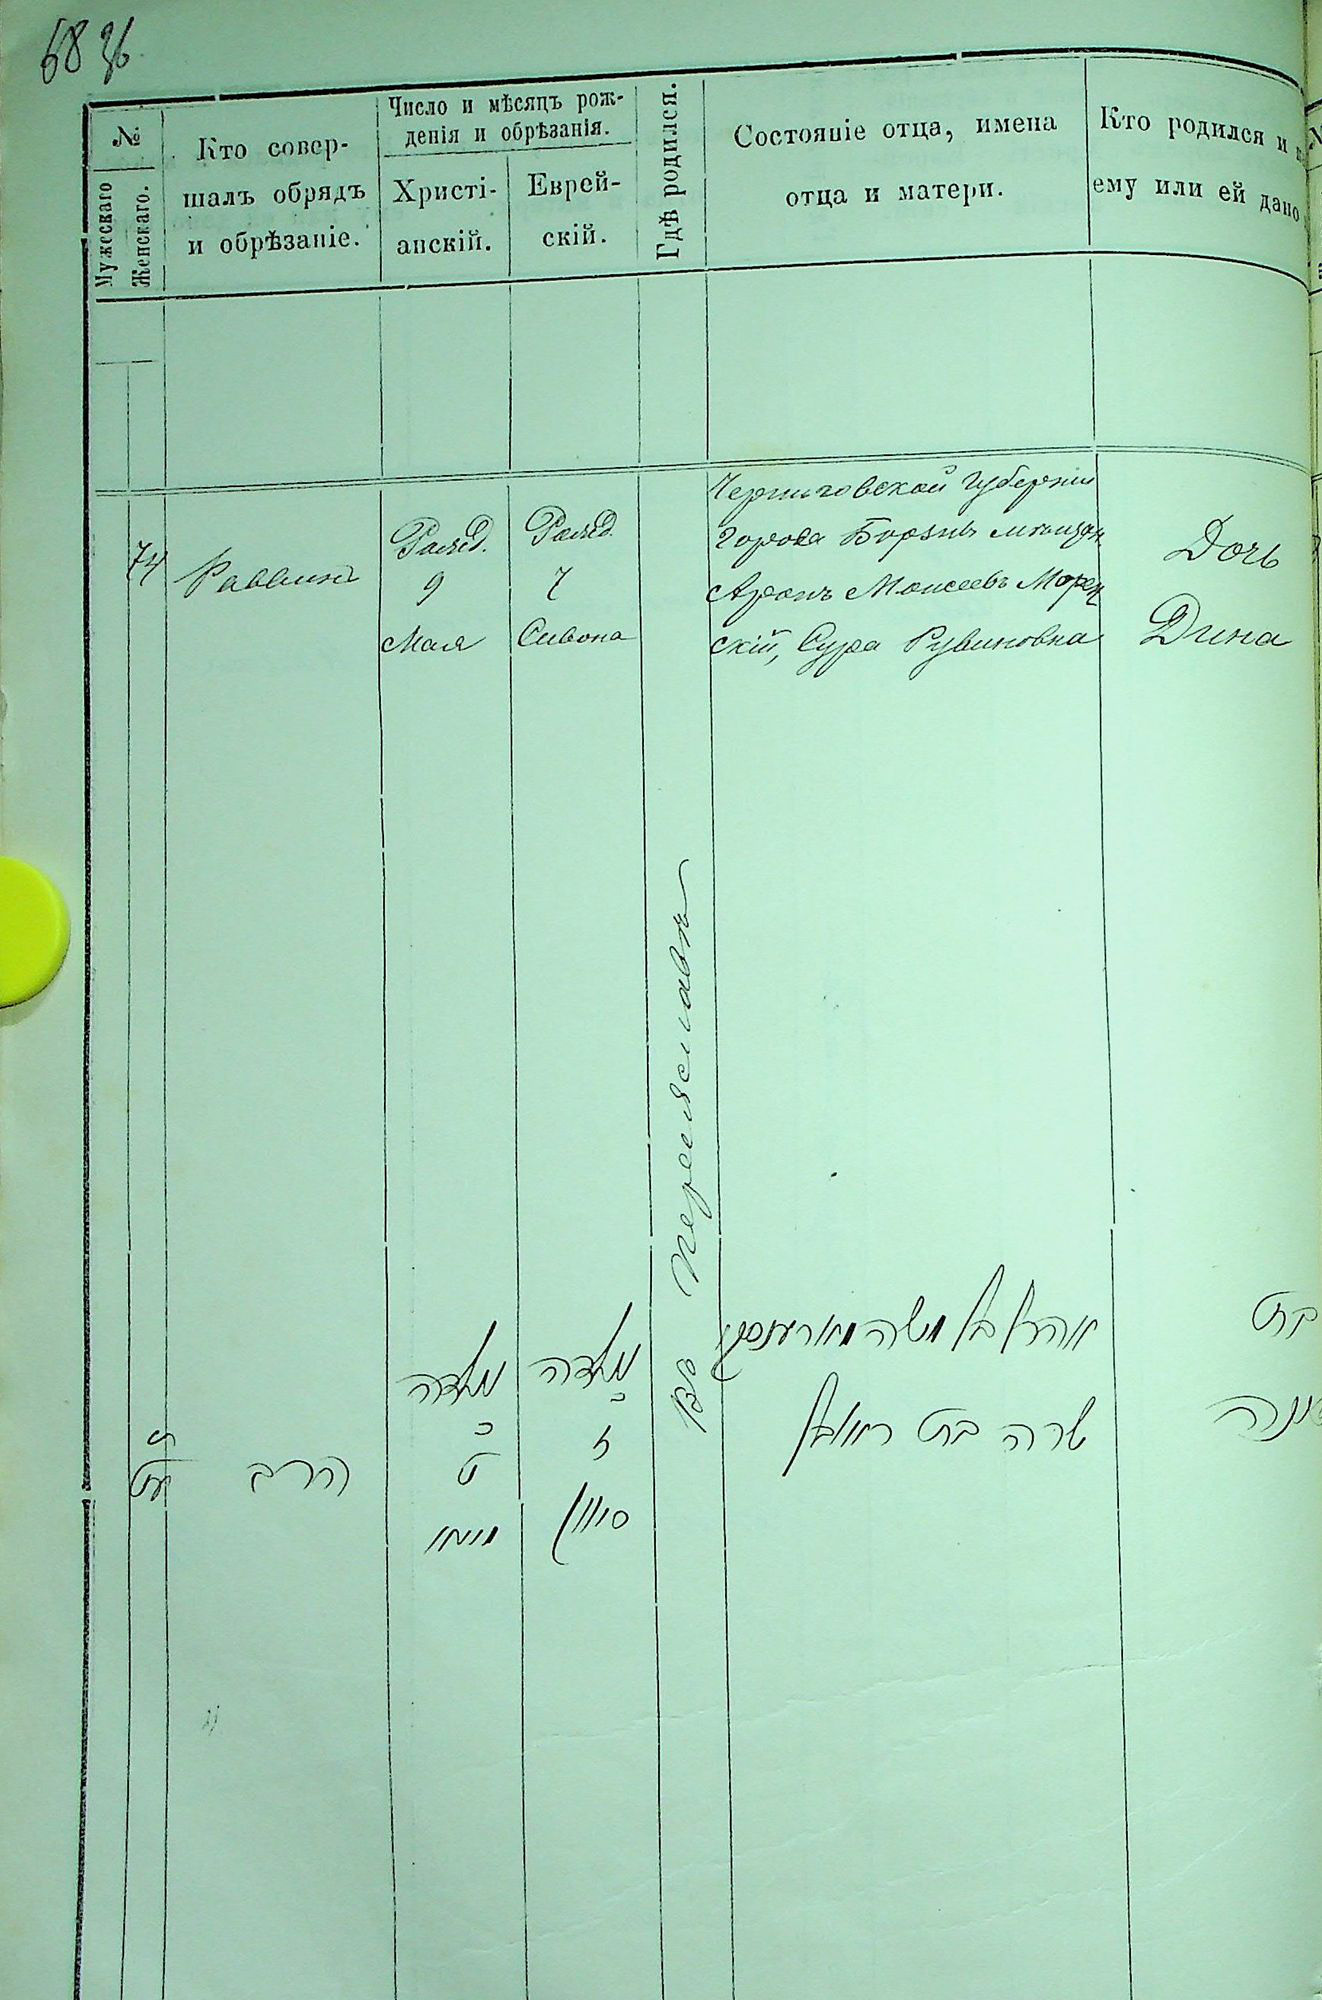 68 об.
№
Мужескаго
Женскаго.
Кто совер-
шалъ обрядъ
и обрѣзаніе.
Число и мѣсяцъ рож-
денія и обрѣзанія.
Христі-
анскій.
Еврей-
скій.
Гдѣ родился.
Состояніе отца, имена
отца и матери.
Кто родился и
ему или ей дано
74
Раввинъ
Рожд.
9
Мая
Рожд.
7
Сивона
Въ Переяславѣ
Черниговской Губерніи
города Борзнъ мѣщан.
Аронъ Моисеевъ Морен
скій, Сура Рувиновна
Дочь
Дина
הרב
נולדה
ט
מאי
נולדה
ז
סיון
אהרן בן משה מארענסקי
שרה בת ראובן
בת